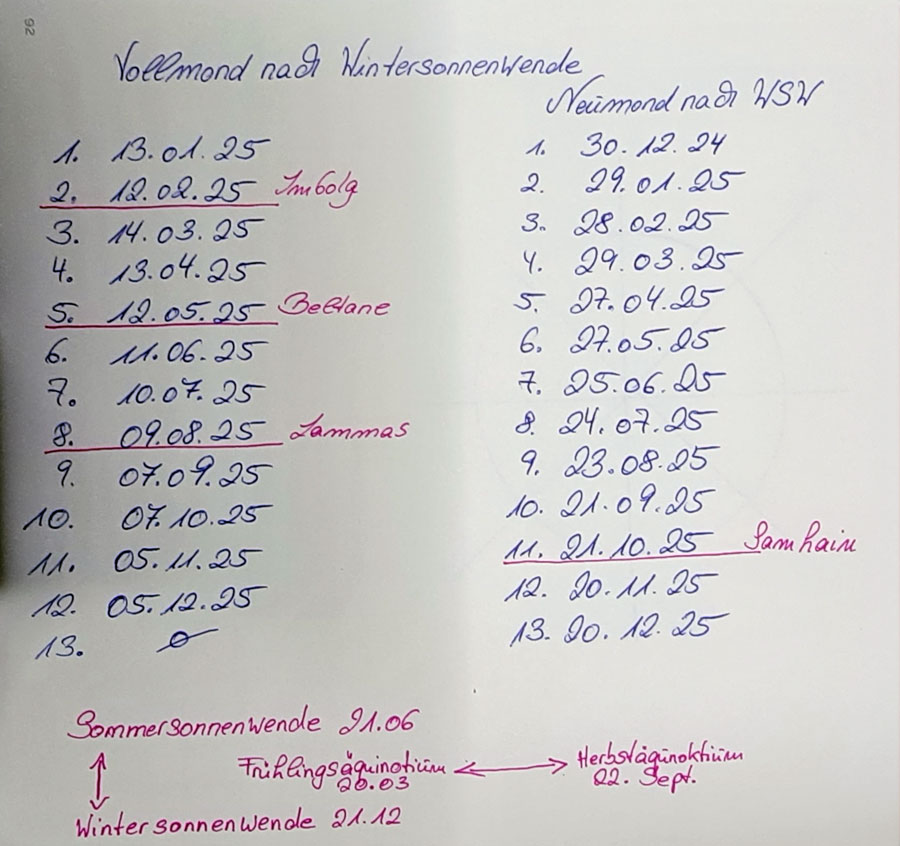 92
Vollmond nach Wintersonnenwende
1. 13.01.25
2. 12.02.25 Imbolg
3. 14.03.25
4. 13.04.25
5. 12.05.25 Beltane
6. 11.06.25
7. 10.07.25
8. 09.08.25 Lammas
9. 07.09.25
10. 07.10.25
11. 05.11.25
12. 05.12.25
13. ø
Neumond nach WSW
1. 30.12.24
2. 29.01.25
3. 28.02.25
4. 29.03.25
5. 27.04.25
6. 27.05.25
7. 25.06.25
8. 24.07.25
9. 23.08.25
10. 21.09.25
11. 21.10.25 Samhain
12. 20.11.25
13. 20.12.25
Sommersonnenwende 21.06
Frühlingsäquinotium
20.03
Herbstäqunoktium
22. Sept.
Wintersonnenwende 21.12